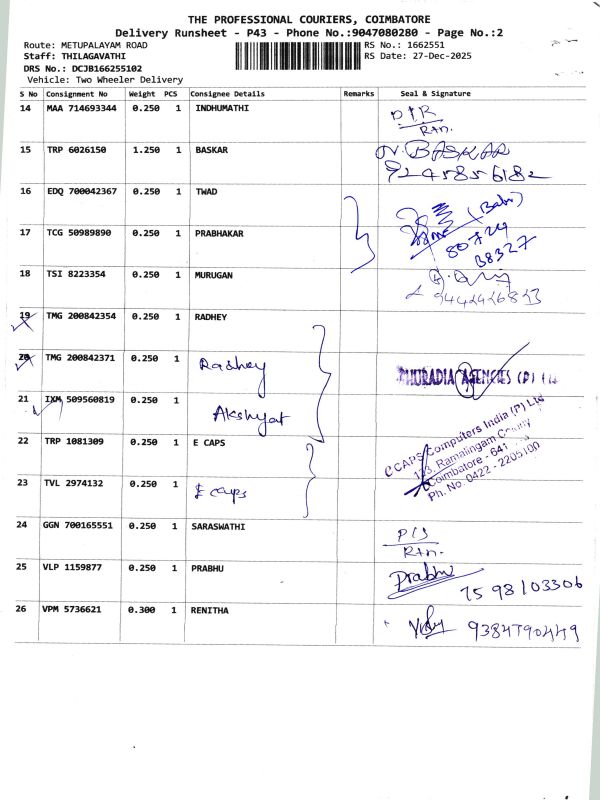 THE PROFESSIONAL COURIERS, COIMBATORE
Delivery Runsheet - P43 - Phone No.:9047080280 - Page No.:2
Route: METUPALAYAM ROAD RS No.: 1662551
Staff: THILAGAVATHI RS Date: 27-Dec-2025
DRS No.: DCJB166255102
Vehicle: Two Wheeler Delivery
S No Consignment No Weight PCS Consignee Details Remarks Seal & Signature
14 MAA 714693344 0.250 1 INDHUMATHI
Rtn.
15 TRP 6026150 1.250 1 BASKAR N. BASKAR
9245856182
16 EDQ 700042367 0.250 1 TWAD (Babu)
17 TCG 50989890 0.250 1 PRABHAKAR 80724
B8327
18 TSI 8223354 0.250 1 MURUGAN
19 TMG 200842354 0.250 1 RADHEY
20 TMG 200842371 0.250 1 Radhey AGENCIES (P)
21 IXM 509560819 0.250 1 Akshyat
22 TRP 1081309 0.250 1 E CAPS CAPS Computers India (P) Ltd
Ramalingam
Coimbatore - 641
23 TVL 2974132 0.250 1 E caps Ph. No. 0422 - 2205100
24 GGN 700165551 0.250 1 SARASWATHI
Rtn.
25 VLP 1159877 0.250 1 PRABHU Prabhu 7598103306
26 VPM 5736621 0.300 1 RENITHA 9384790449